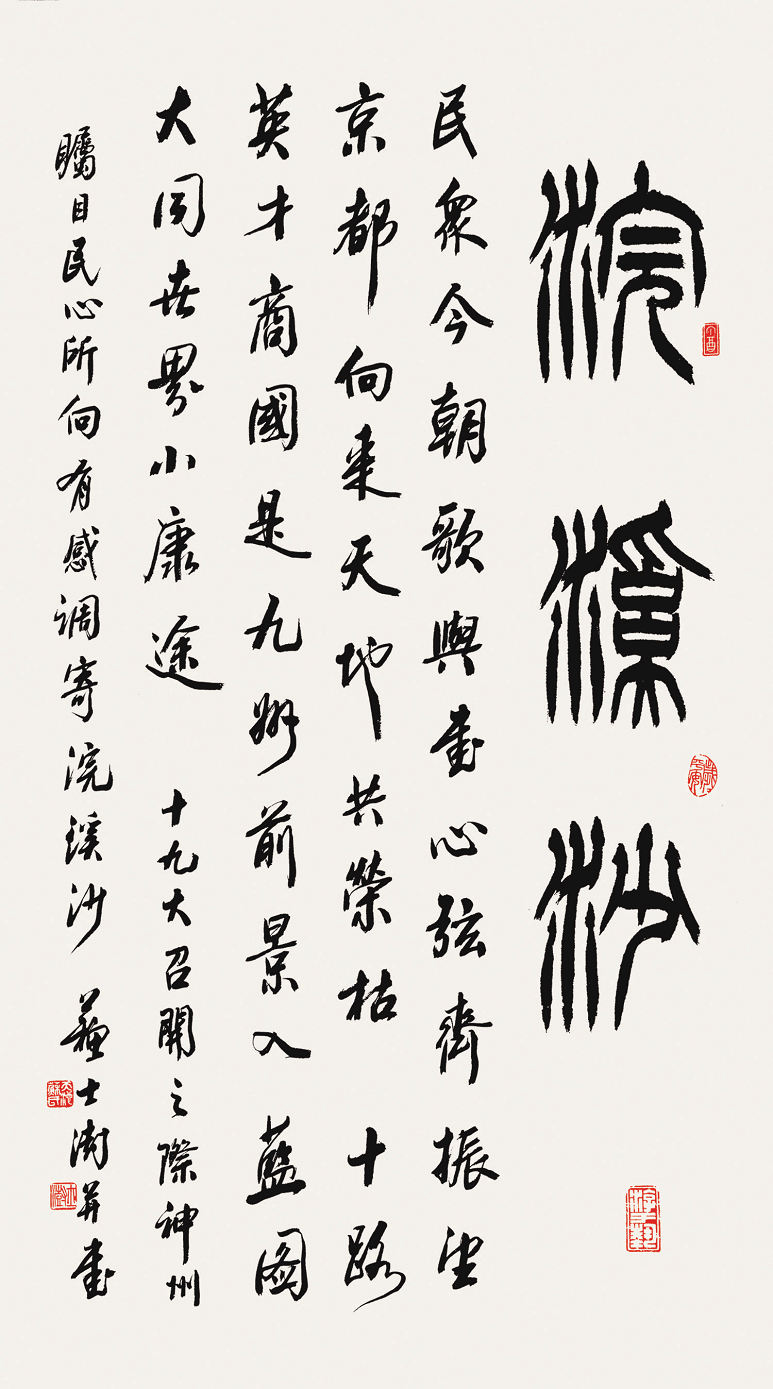 浣溪沙
民眾今朝歌與書心弦齊振望
京都向來天地共榮枯 十路
英才商國是九州前景入藍圖
大同世界小康途 十九大召開之際神州
矚目民心所向有感調寄浣溪沙 蘇士澍并書
丁酉